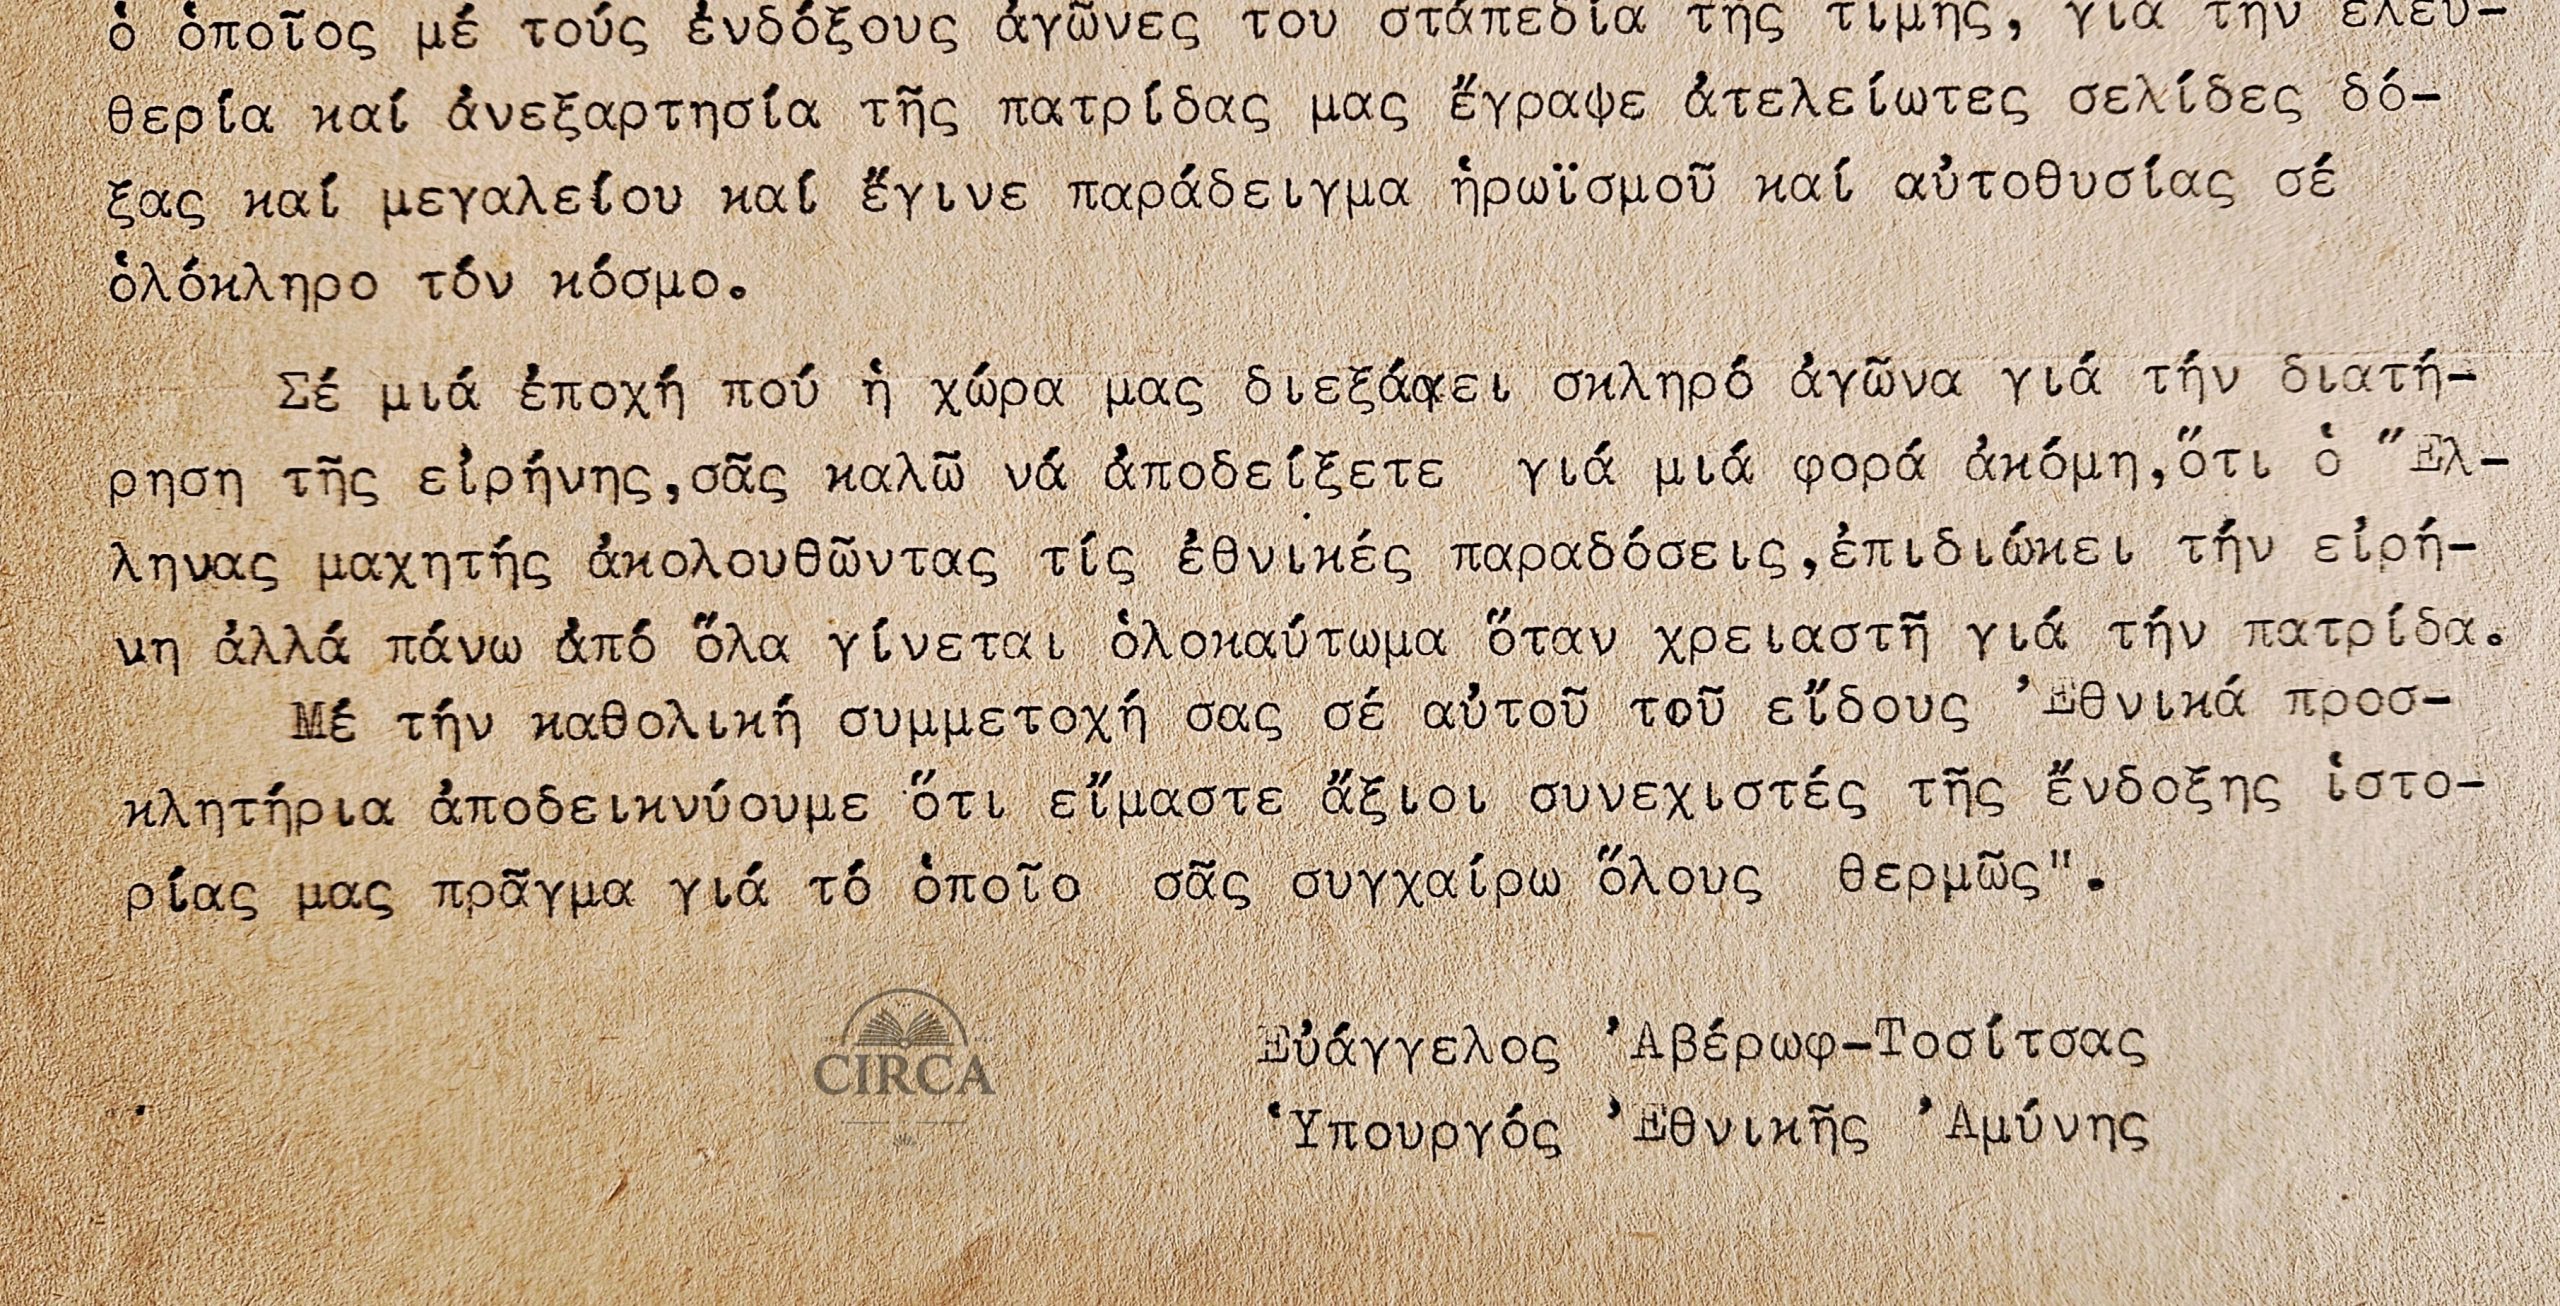 ὁ ὁποῖος μέ τούς ἐνδόξους ἀγῶνες του στάπεδία τῆς τιμῆς, γιά τήν ἐλευ-
θερία καί ἀνεξαρτησία τῆς πατρίδας μας ἔγραψε ἀτελείωτες σελίδες δό-
ξας καί μεγαλείου καί ἔγινε παράδειγμα ἡρωϊσμοῦ καί αὐτοθυσίας σέ
ὁλόκληρο τόν κόσμο.
Σέ μιά ἐποχή πού ἡ χώρα μας διεξάγει σκληρό ἀγῶνα γιά τήν διατή-
ρηση τῆς εἰρήνης,σᾶς καλῶ νά ἀποδείξετε γιά μιά φορά ἀκόμη,ὅτι ὁ Ἕλ-
ληνας μαχητής ἀκολουθῶντας τίς ἐθνικές παραδόσεις,ἐπιδιώκει τήν εἰρή-
νη ἀλλά πάνω ἀπό ὅλα γίνεται ὁλοκαύτωμα ὅταν χρειαστῆ γιά τήν πατρίδα.
Μέ τήν καθολική συμμετοχή σας σέ αὐτοῦ τοῦ εἴδους Ἐθνικά προσ-
κλητήρια ἀποδεικνύουμε ὅτι εἴμαστε ἄξιοι συνεχιστές τῆς ἔνδοξης ἱστο-
ρίας μας πρᾶγμα γιά τό ὁποῖο σᾶς συγχαίρω ὅλους θερμῶς".
CIRCA
Εὐάγγελος Ἀβέρωφ-Τοσίτσας
Ὑπουργός Ἐθνικῆς Ἀμύνης